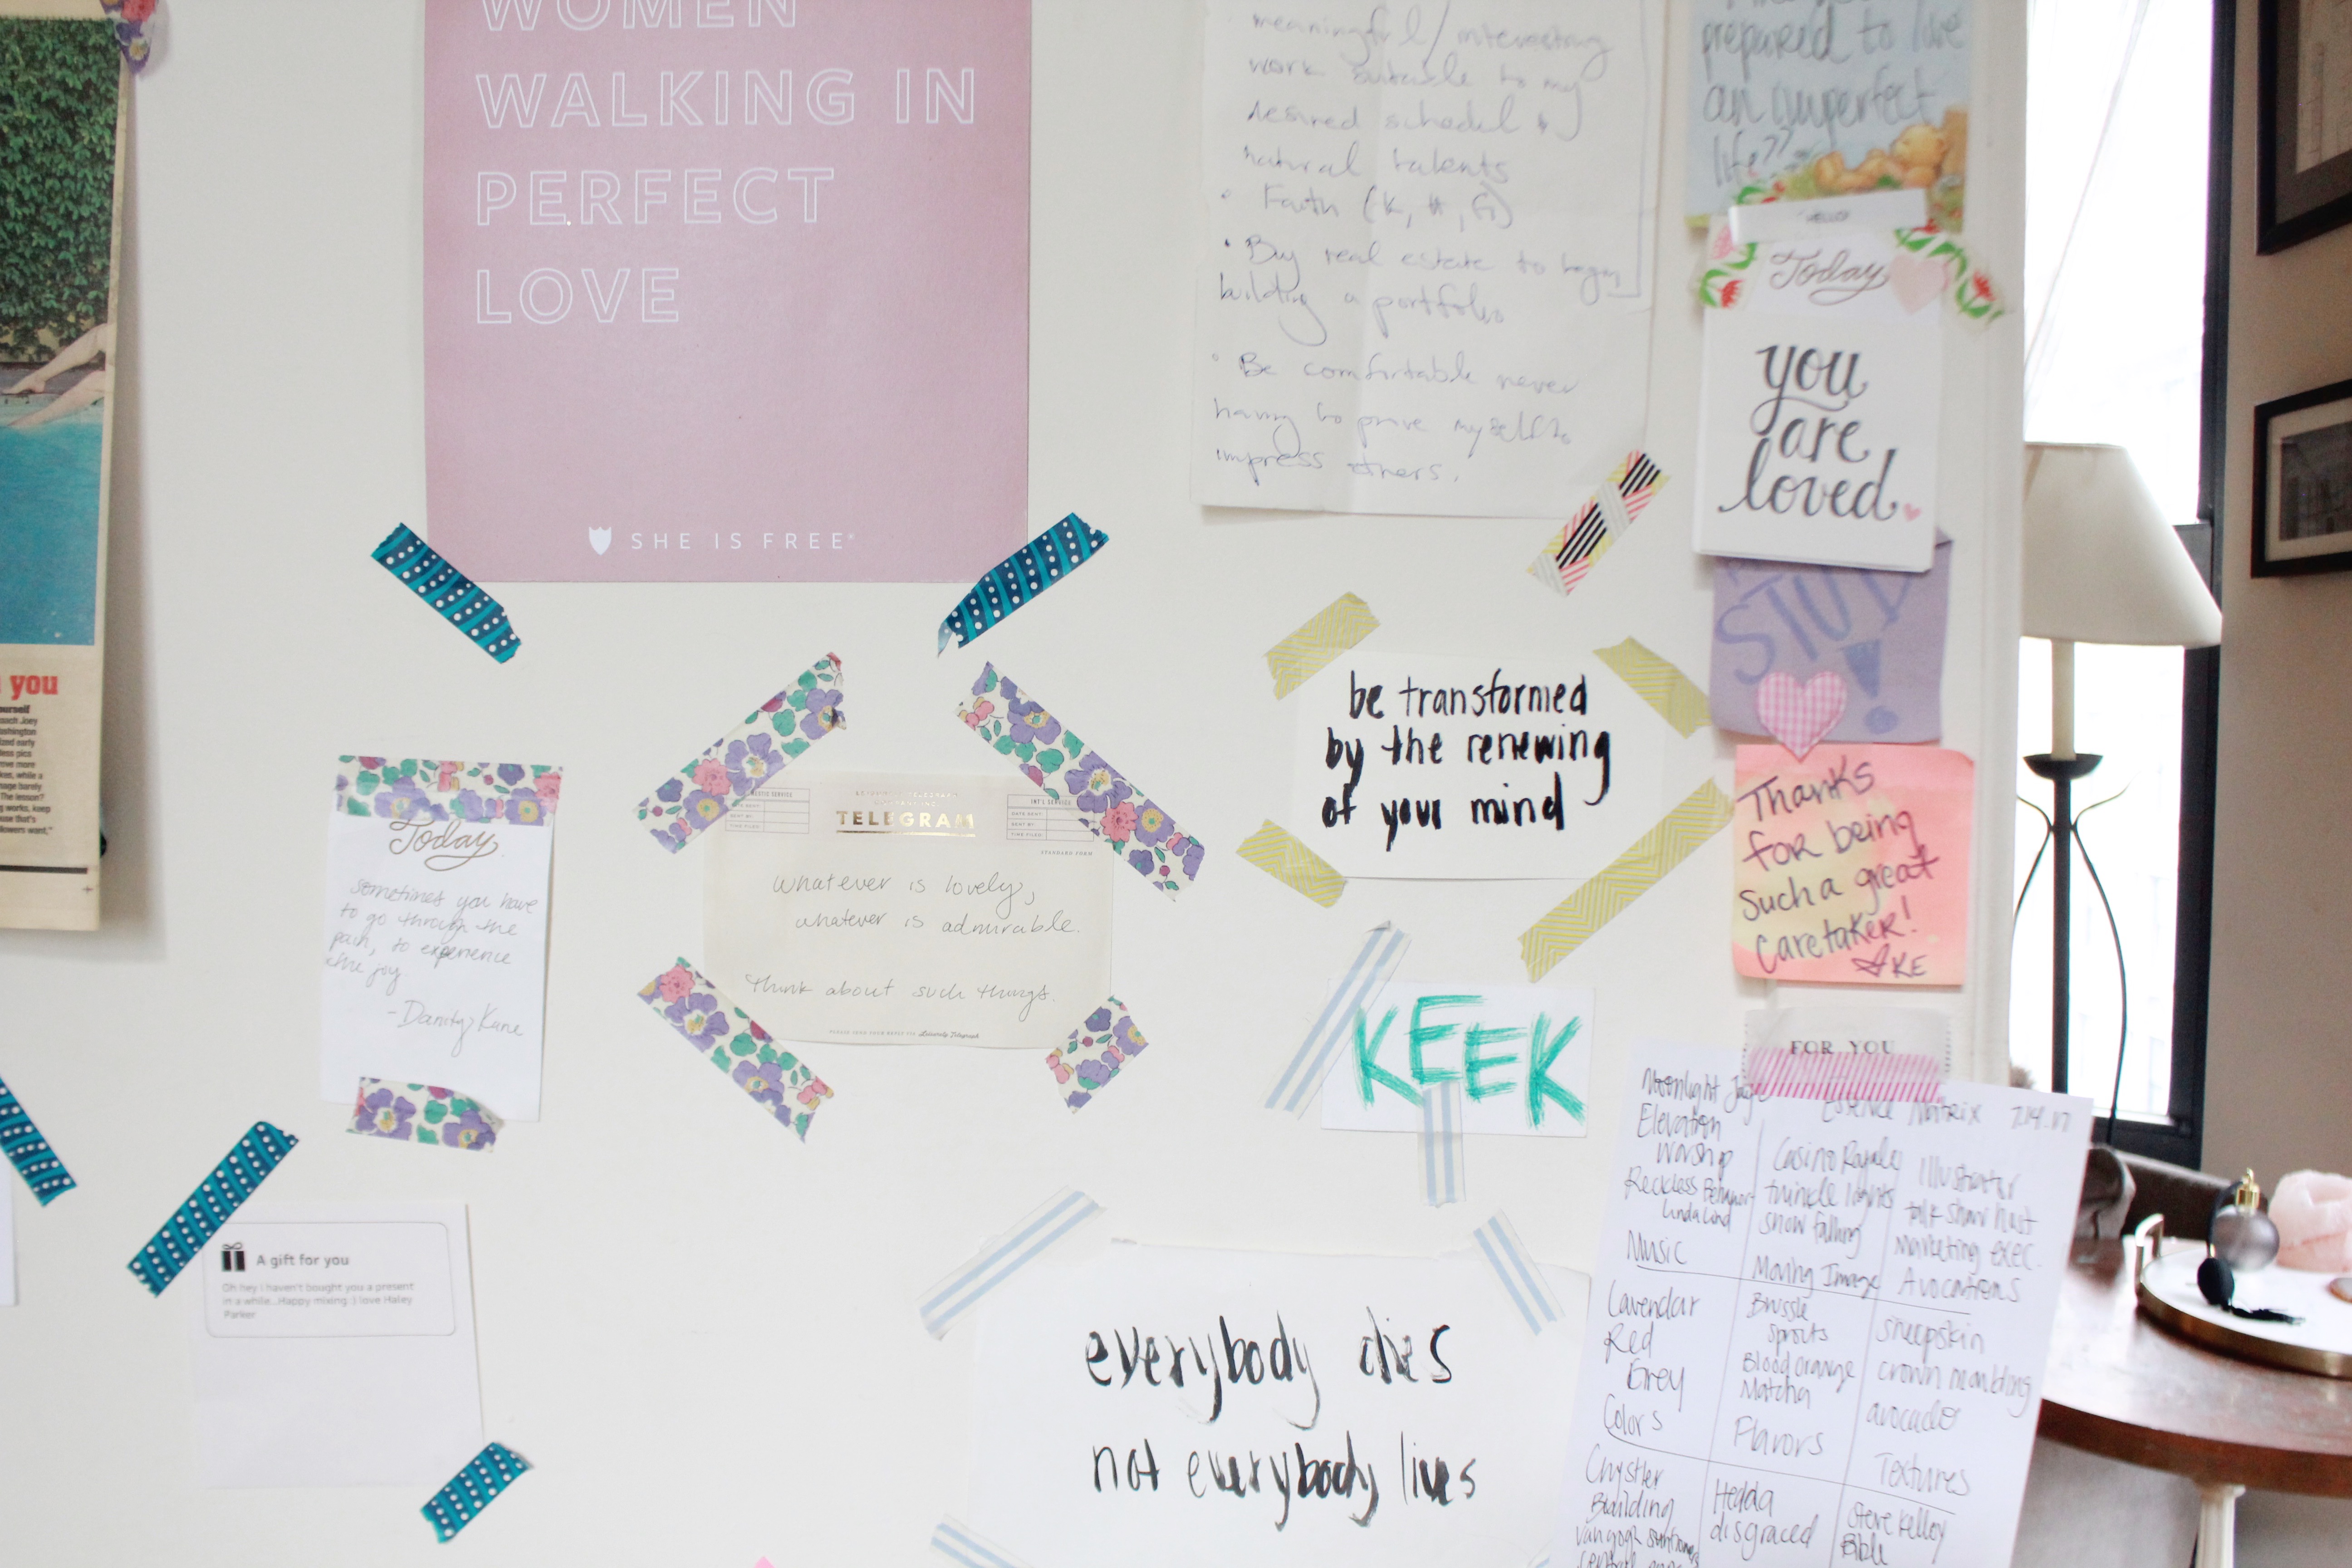 WOMEN
WALKING IN
PERFECT
LOVE
SHE IS FREE
meaningful / interesting
work suitable to my
desired schedul &
natural talents
• Faith (K, H, G)
• Buy real estate to begin
building a portfolio
• Be comfortable never
having to prove myself to
impress others.
prepared to live
an imperfect
life??
HELLO!
Today
you
are
loved
STUD
!
you
Today
sometimes you have
to go through the
pain, to experience
the joy
- Danity Kane
TELEGRAM
INT'L SERVICE
DATE SENT:
SENT BY:
TIME FILED:
SENT BY:
TIME FILED:
STANDARD FORM
whatever is lovely,
whatever is admirable.
think about such things.
be transformed
by the renewing
of your mind
Thanks
for being
such a great
caretaker!
KE
KEEK
FOR YOU
A gift for you
Oh hey I haven't bought you a present
in a while...Happy mixing :) love Haley
Parker
everybody dies
not everybody lives
Essence Matrix 7.14.17
Moonlight
Elevation
Worship
Reckless Behavior
Linda Lind
Music
Casino Royale
twinkle lights
snow falling
Moving Image
Illustrator
talk show host
Marketing exec.
Avocations
Lavendar
Red
Grey
Colors
Brussle
sprouts
Blood orange
Matcha
Flavors
sheepskin
crown moulding
avocado
Textures
Chrystler
Buuilding
van gogh
Hedda
disgraced
Steve Kelley
Bible